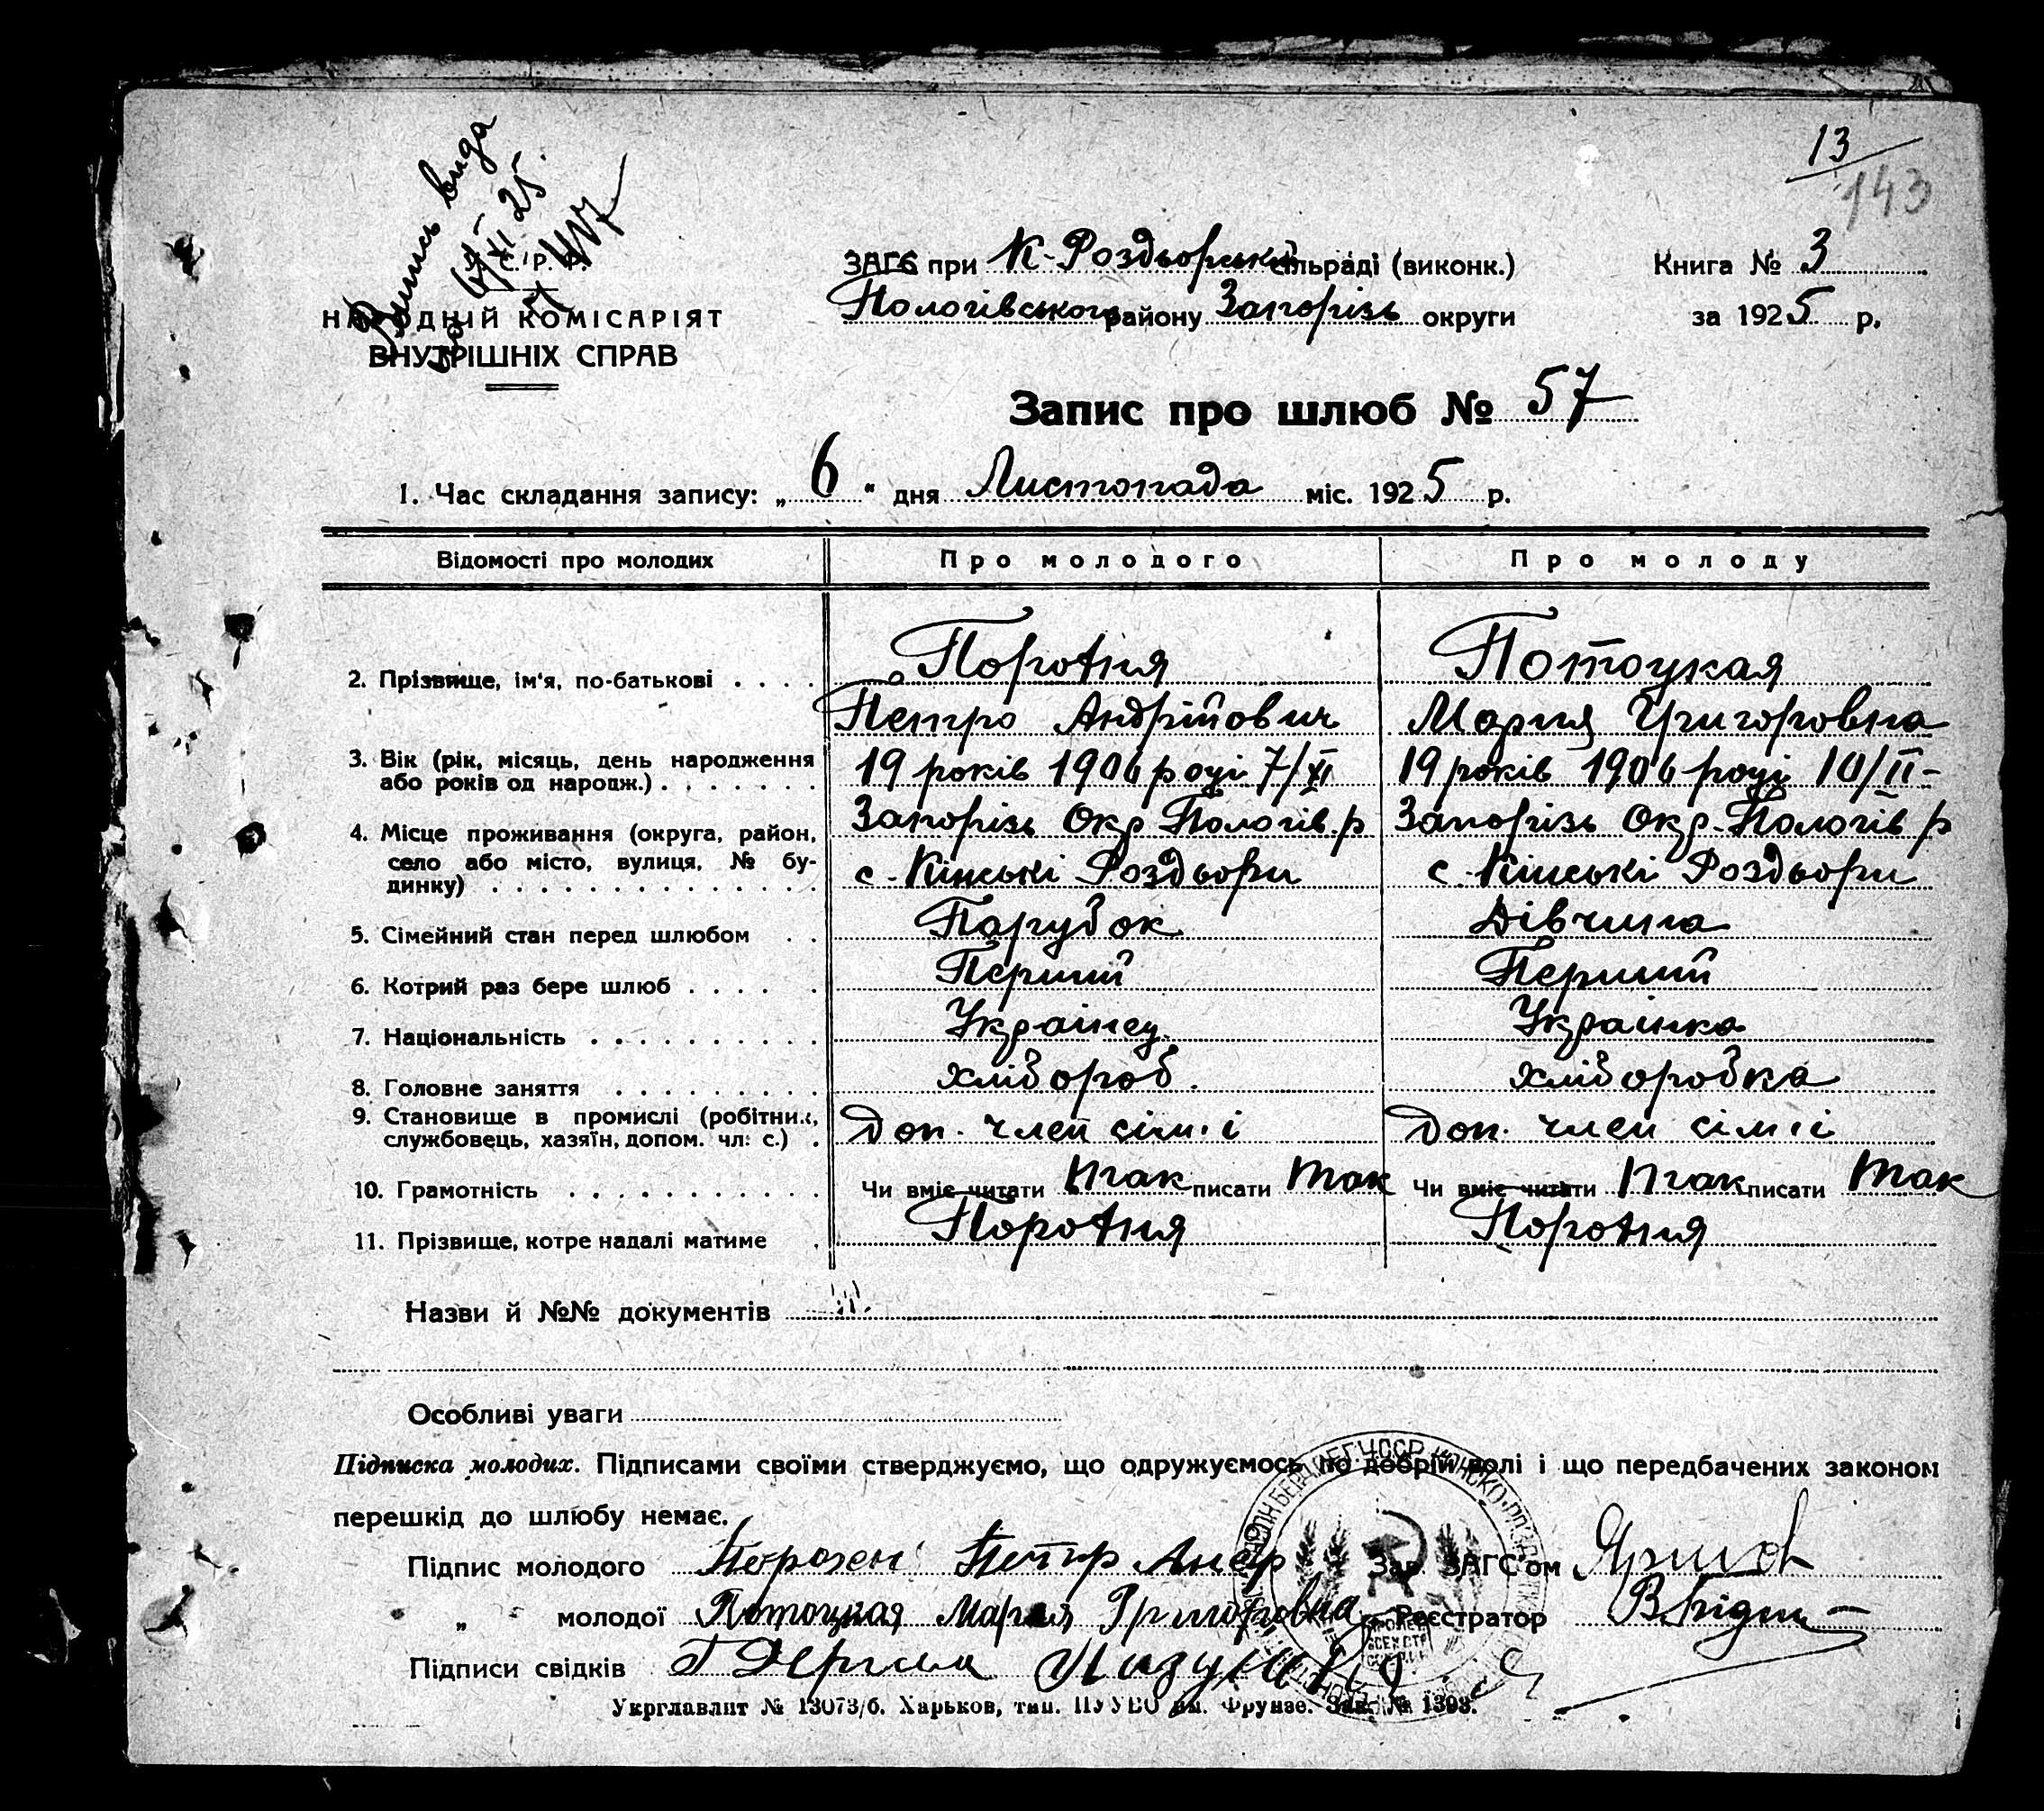 13
143
Випись вида
6/XI 25
У. С. Р. Р.
НАРОДНІЙ КОМІСАРІЯТ
ВНУТРІШНІХ СПРАВ
ЗАГС при К-Роздьорський сільраді (виконк.)
Пологівського району Запорізь округи
Книга № 3
за 1925 р.
Запис про шлюб № 57
1. Час складання запису: „ 6 “ дня Листопада міс. 1925 р.
Відомості про молодих Про молодого Про молоду
2. Прізвище, ім'я, по-батькові . . . . Поротня Потоцкая
Петро Андрійович Мария Григоровна
3. Вік (рік, місяць, день народження 19 років 1906 році 7/XI 19 років 1906 році 10/II -
або років од народж.) . . . . . . .
4. Місце проживання (округа, район, Запорізь Окр Пологів. р Запорізь Окр. Пологів р
село або місто, вулиця, № бу- с. Кінські Роздьори с. Кінські Роздьори
динку) . . . . . . . . . . . . . .
5. Сімейний стан перед шлюбом . . Парубок Дівчина
6. Котрий раз бере шлюб . . . . . Перший Перший
7. Національність . . . . . . . . . . Українец Українка
8. Головне заняття . . . . . . . . . хлібороб. хліборобка
9. Становище в промислі (робітник,
службовець, хазяїн, допом. чл. с.) . Доп. член сім'ї Доп. член сім'ї
10. Грамотність . . . . . . . . . . . Чи вміє читати так писати так Чи вміє читати так писати так
11. Прізвище, котре надалі матиме . Поротня Поротня
Назви й №№ документів
Особливі уваги
Підписка молодих. Підписами своїми стверджуємо, що одружуємось по добрій волі і що передбачених законом
перешкід до шлюбу немає.
Підпис молодого Петр Андр Зав. ЗАГС'ом
„ молодої Потоцкая Мария Григоровна Реєстратор
Підписи свідків
Укрглавліт № 13073/б. Харьков, тип. ПУУВО им. Фрунзе. Зак. № 1393.